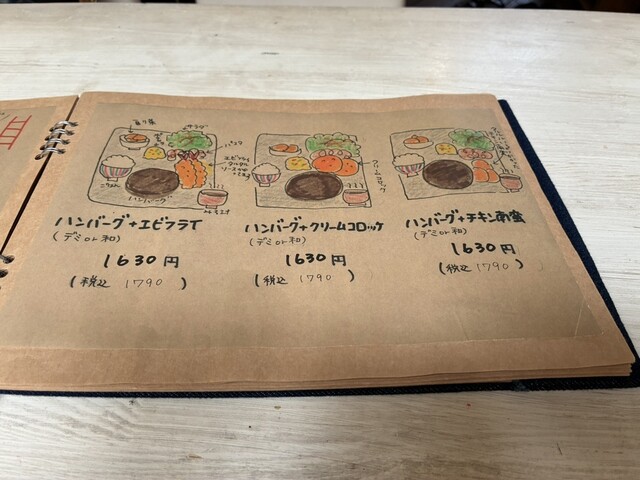 サラダ
パスタ
エビフライ
タルタル
ごはん
ハンバーグ
ハンバーグ+エビフライ
(デミor和)
1630円
(税込 1790)
クリームコロッケ
ハンバーグ+クリームコロッケ
(デミor和)
1630円
(税込 1790)
ハンバーグ+チキン南蛮
(デミor和)
1630円
(税込 1790)